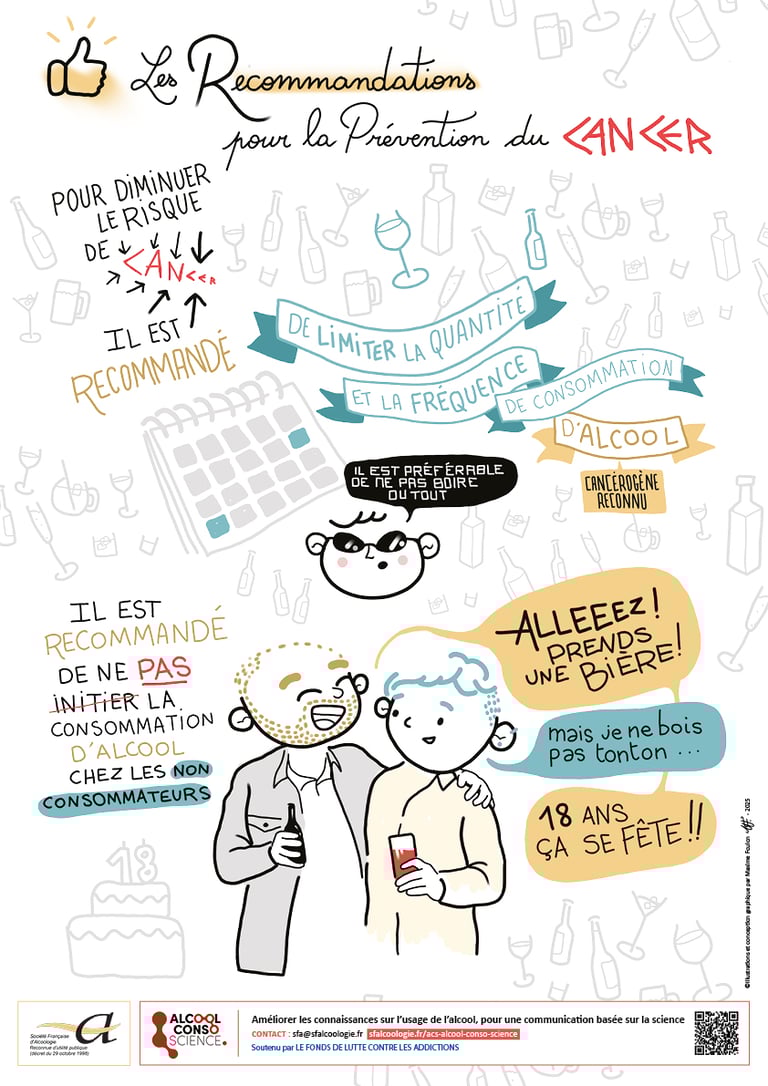 Les Recommandations
pour la Prévention du CANCER
POUR DIMINUER
LE RISQUE
DE CANCER
IL EST
RECOMMANDÉ
DE LIMITER LA QUANTITÉ
ET LA FRÉQUENCE
DE CONSOMMATION
D'ALCOOL
CANCÉROGÈNE
RECONNU
IL EST PRÉFÉRABLE
DE NE PAS BOIRE
DU TOUT
IL EST
RECOMMANDÉ
DE NE PAS
INITIER LA
CONSOMMATION
D'ALCOOL
CHEZ LES NON
CONSOMMATEURS
ALLEEEZ!
PRENDS
UNE BIÈRE!
mais je ne bois
pas tonton ...
18 ANS
ÇA SE FÊTE!!
18
©Illustrations et conception graphique par Maxime Foulon - 2025
a
Société Française
d'Alcoologie
Reconnue d'utilité publique
(décret du 29 octobre 1998)
ALCOOL
CONSO
SCIENCE.
Améliorer les connaissances sur l'usage de l'alcool, pour une communication basée sur la science
CONTACT : sfa@sfalcoologie.fr sfalcoologie.fr/acs-alcool-conso-science
Soutenu par LE FONDS DE LUTTE CONTRE LES ADDICTIONS